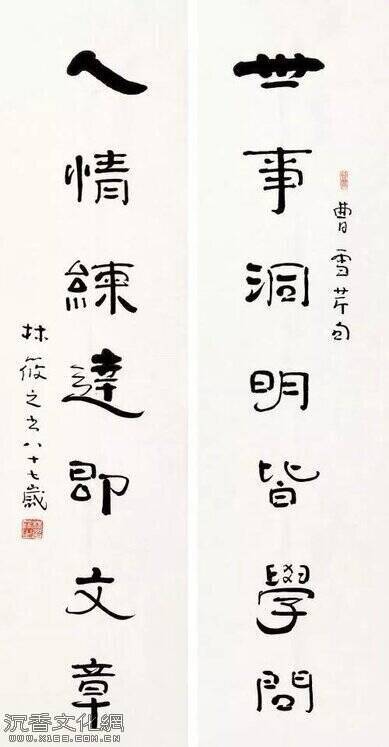 世事洞明皆學問
曹雪芹句
人情練達即文章
林筱之书八十七歲
沉香文化網
WWW.X1688.COM.CN